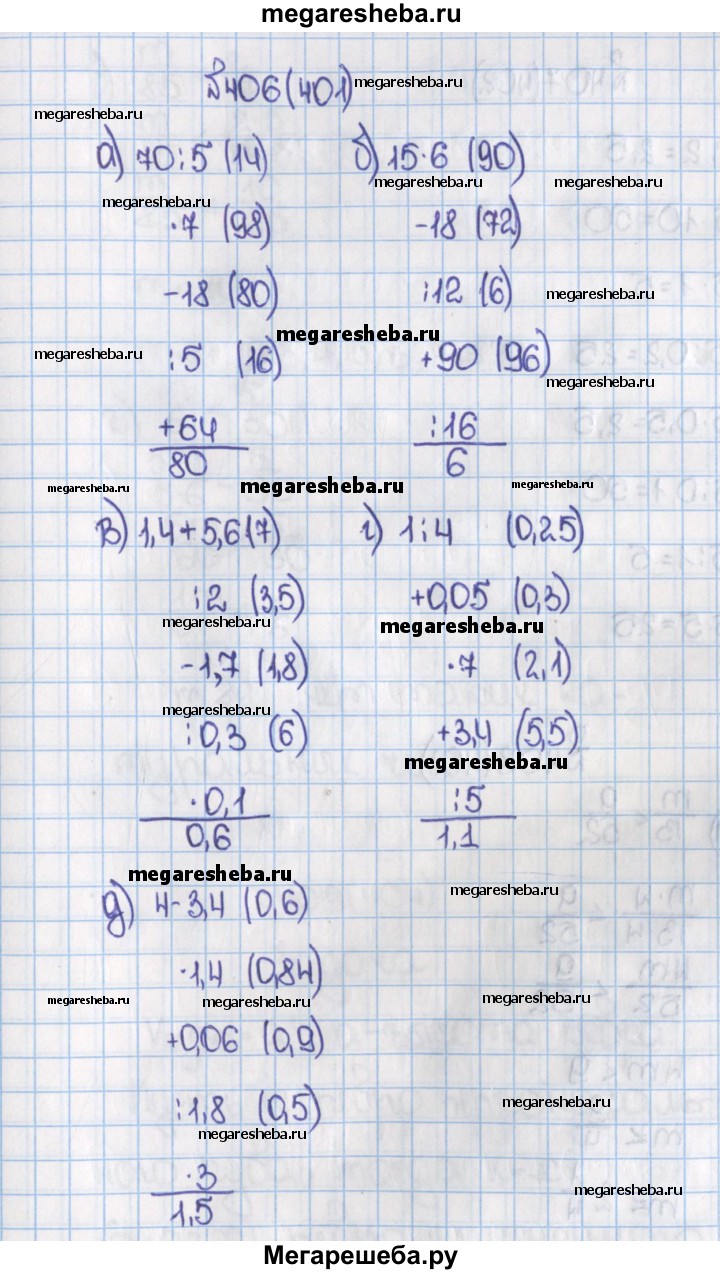 megaresheba.ru
№406(401) megaresheba.ru
megaresheba.ru
а) 70:5 (14) б) 15·6 (90)
megaresheba.ru megaresheba.ru
megaresheba.ru
·7 (98) -18 (72)
-18 (80) :12 (6) megaresheba.ru
megaresheba.ru
megaresheba.ru :5 (16) +90 (96)
megaresheba.ru
+64 :16
80 6
megaresheba.ru megaresheba.ru megaresheba.ru
в) 1,4+5,6(7) г) 1:4 (0,25)
:2 (3,5) +0,05 (0,3)
megaresheba.ru megaresheba.ru
-1,7 (1,8) ·7 (2,1)
megaresheba.ru
:0,3 (6) +3,4 (5,5)
megaresheba.ru
·0,1 :5
0,6 1,1
megaresheba.ru
megaresheba.ru
д) 4-3,4 (0,6)
·1,4 (0,84)
megaresheba.ru megaresheba.ru megaresheba.ru
+0,06 (0,9)
megaresheba.ru
:1,8 (0,5)
megaresheba.ru
·3
megaresheba.ru
1,5
Мегарешеба.ру